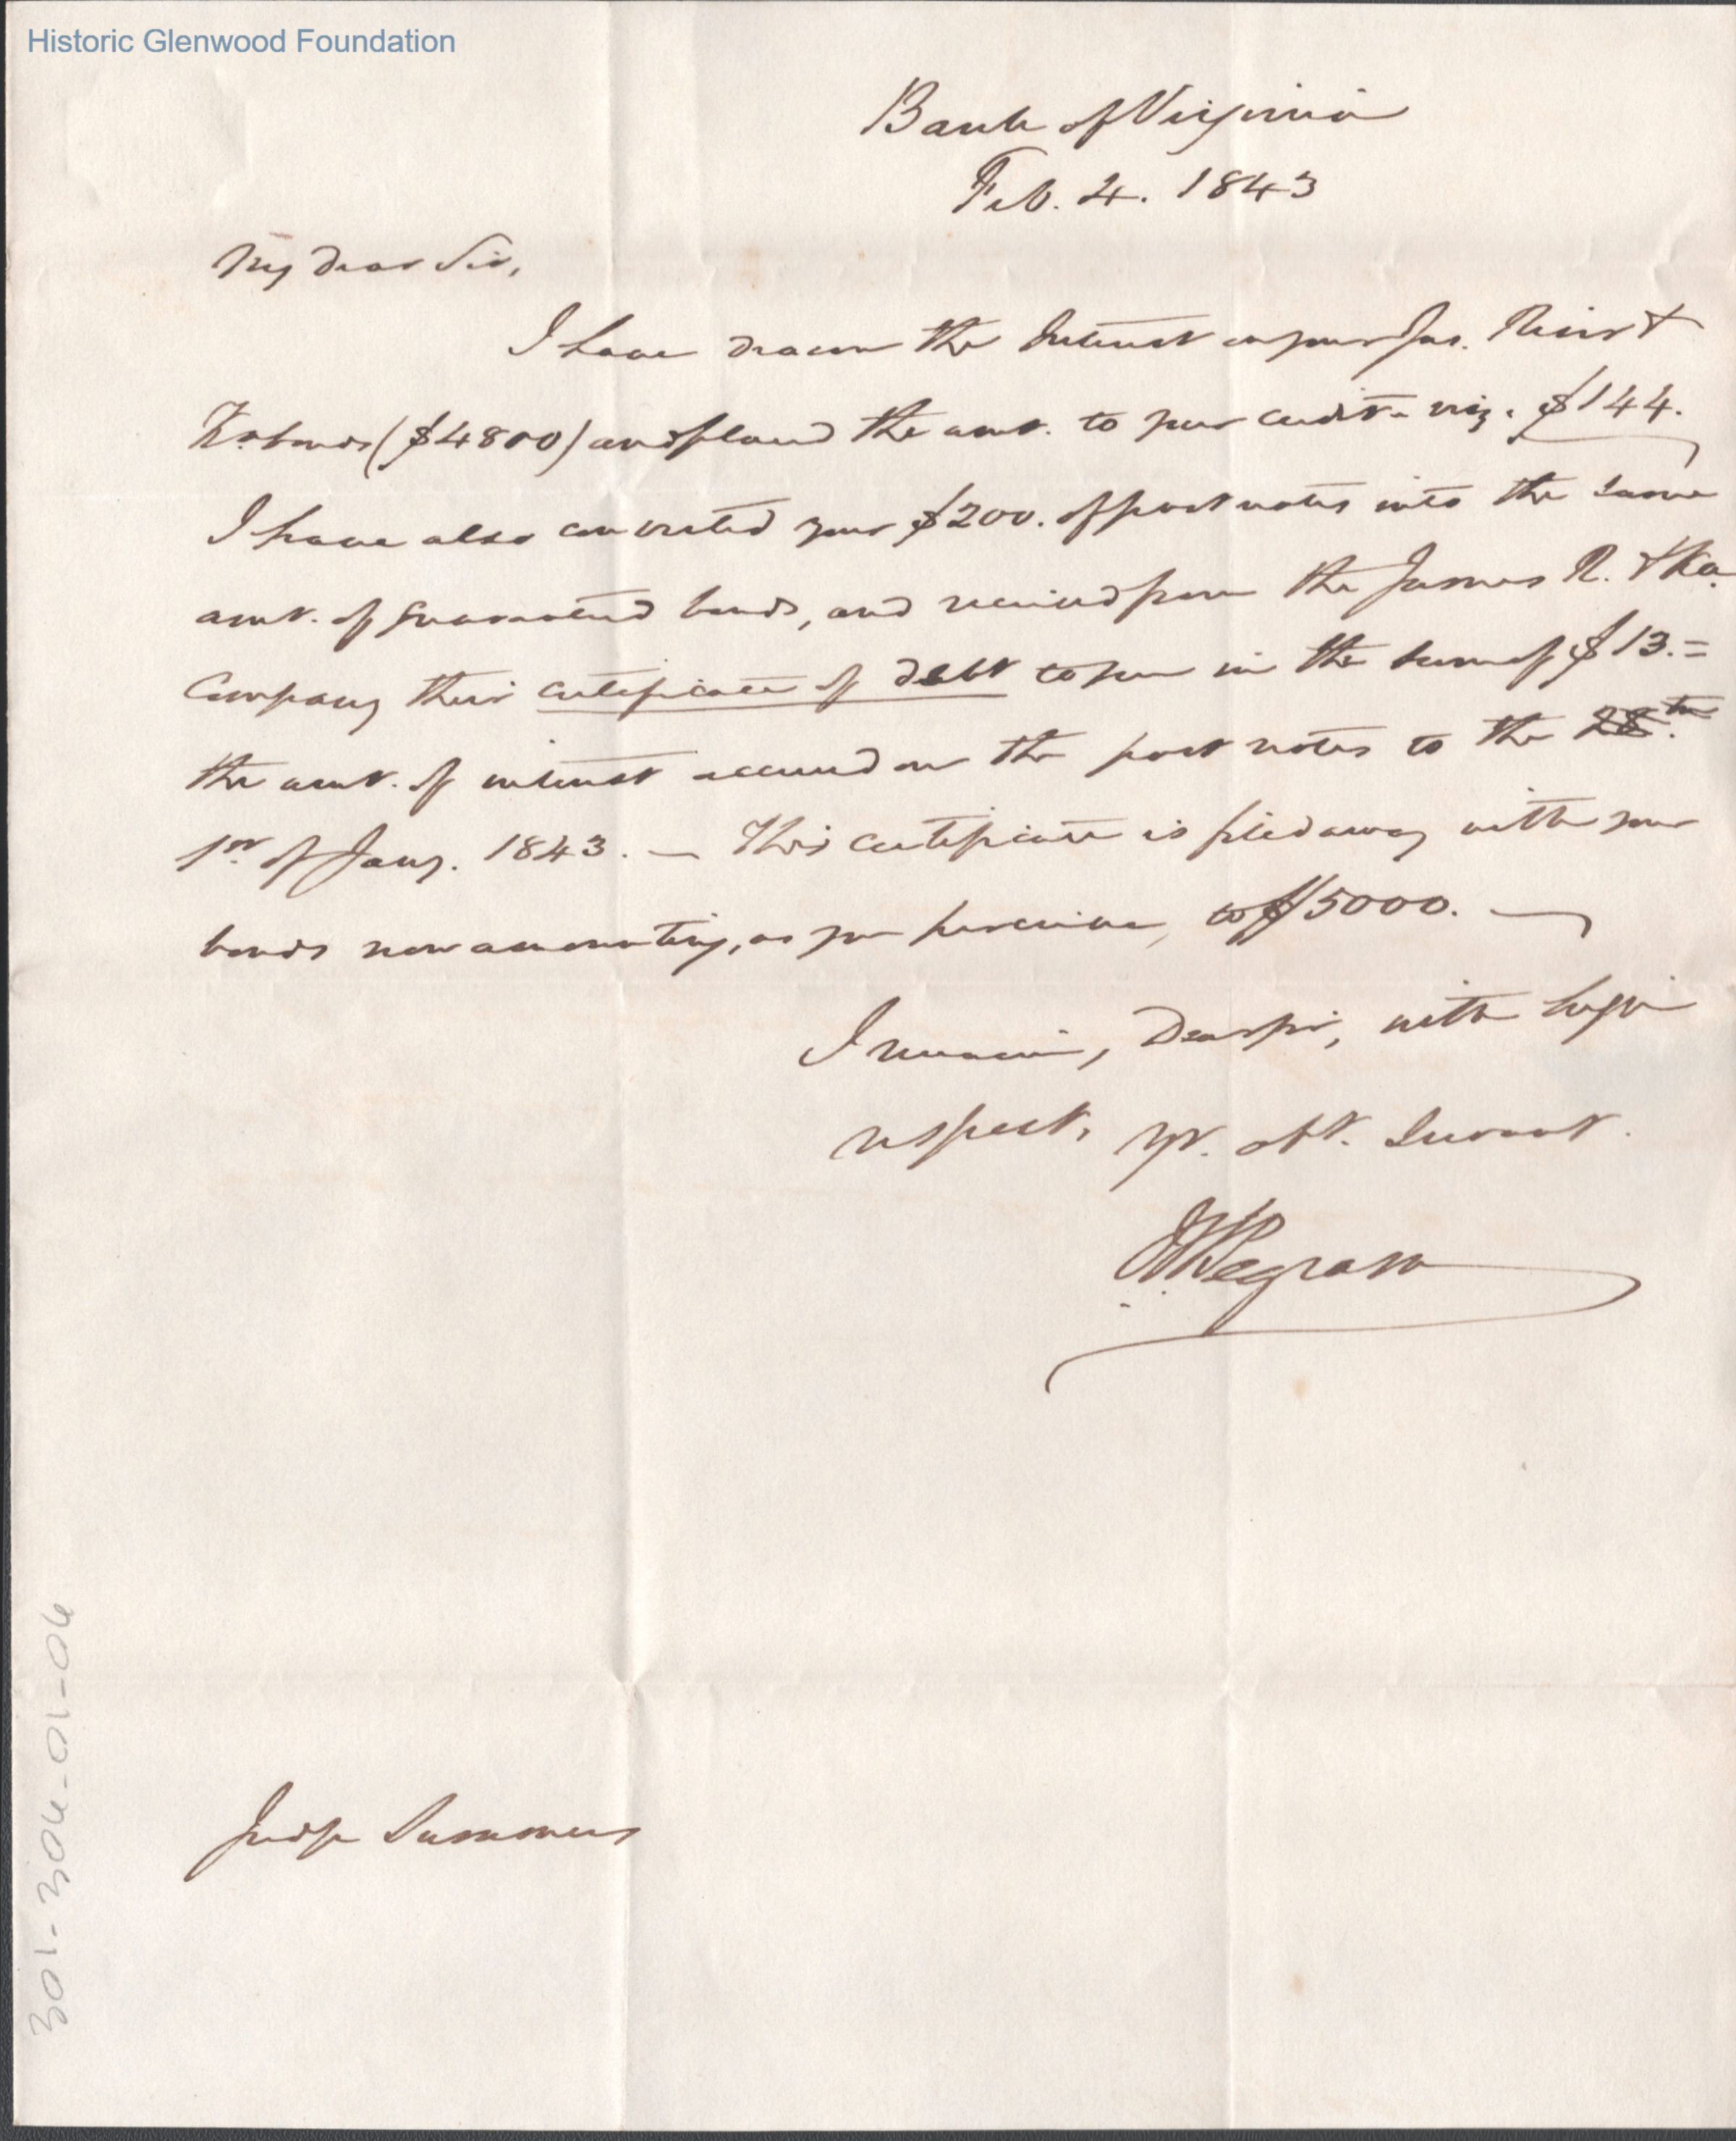 Historic Glenwood Foundation
Bank of Virginia
Feb. 4. 1843
My dear Sir,
I have drawn the Interest on your Jas. River &
Ka. bonds ($4800) and placed the amt. to your credit - viz. $144.
I have also converted your $200. of post notes into the same
amt. of guaranteed bonds, and received from the James R. & Ka.
Company their certificate of debt to you in the sum of $13.=
the amt. of interest accrued on the post notes to the 28th.
1st of Jany. 1843. — This certificate is filed away with your
bonds now amounting, as you perceive, to $5000. —
I remain, Dear sir, with high
respect, yr. obt. Servant.
J W Pegram
Judge Summers
301-306-01-06